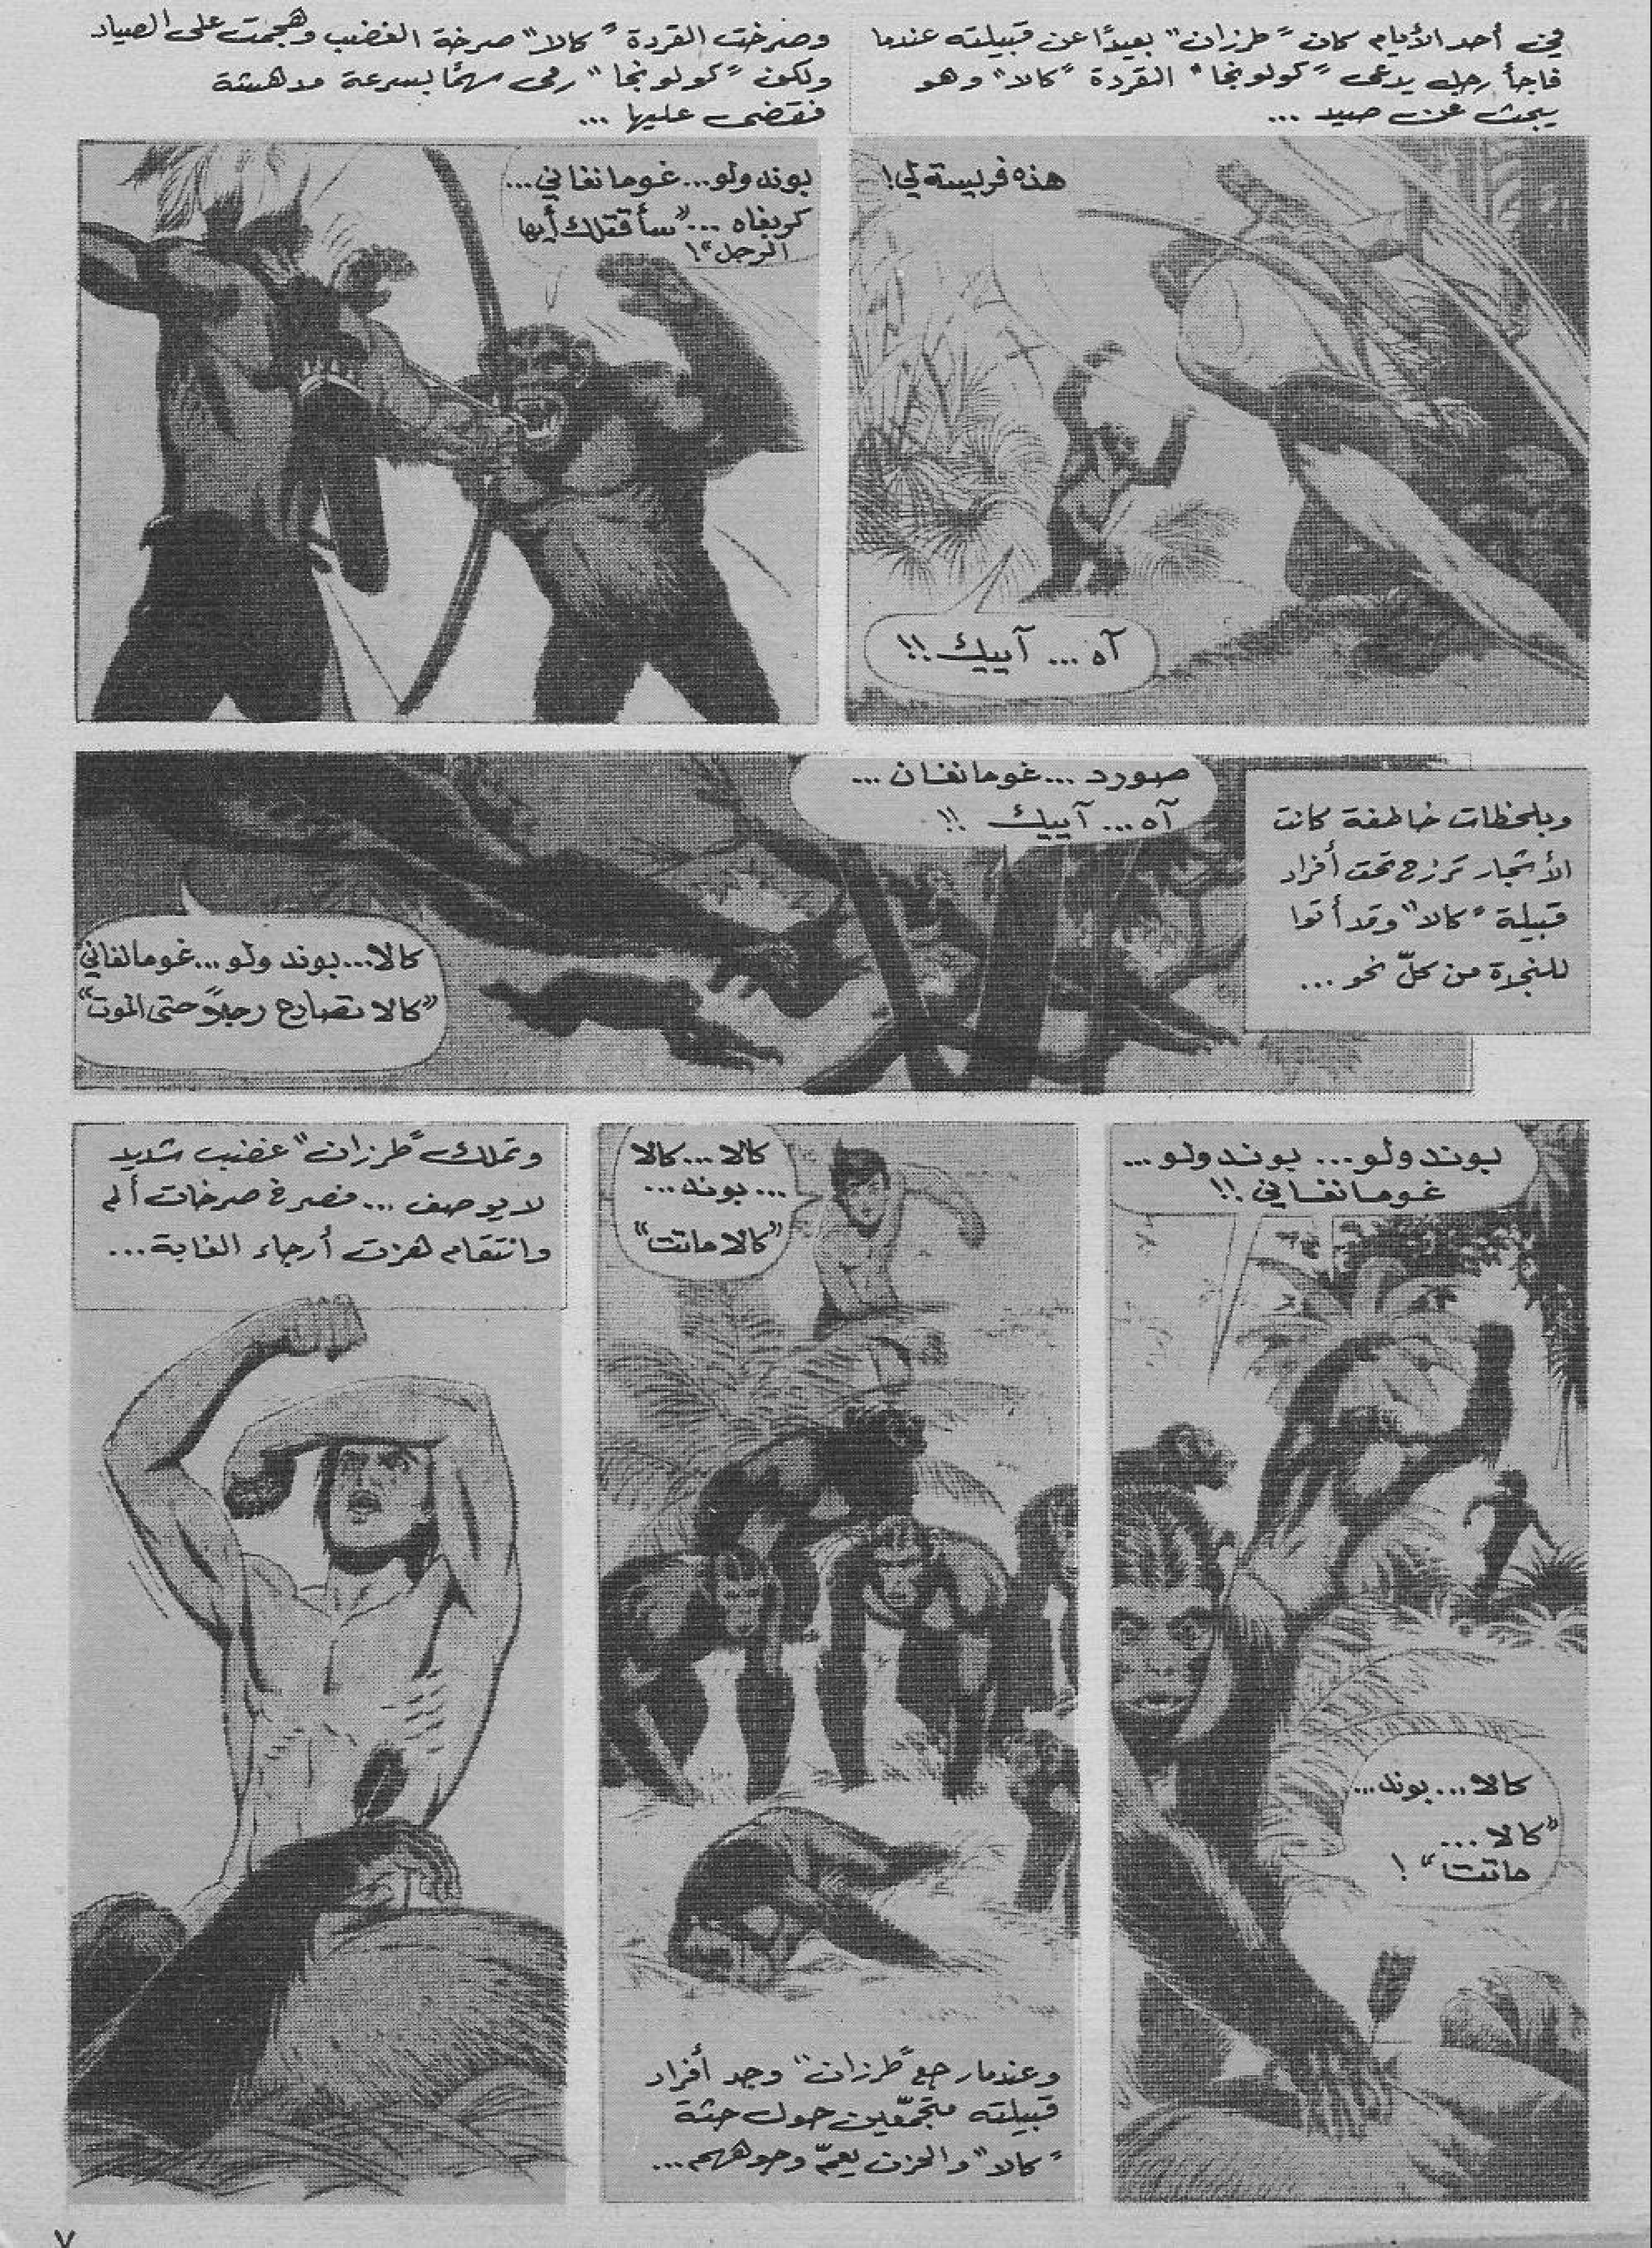 في أحد الأيام كان "طرزان" بعيدًا عن قبيلته عندما
فاجأ رجل يدعى "كولونجا" القردة "كالا" وهو
يبحث عن صيد ...
هذه فريسة لي!
آه ... آييك !!
وصرخت القردة "كالا" صرخة الغضب وهجمت على الصياد
ولكن "كولونجا" رمى سهمًا بسرعة مدهشة
فقضى عليها ...
بوندولو... غومانغاني...
كريغاه ... "سأقتلك أيها
الرجل"!
وبلحظات خاطفة كانت
الأشجار ترزح تحت أفراد
قبيلة "كالا" وقد أتوا
للنجدة من كلّ نحو ...
صورد ... غومانغان ...
آه ... آييك !!
كالا... بوندولو... غومانغاني
"كالا تصارع رجلاً حتى الموت"
بوندولو... بوندولو...
غومانغاني !!
كالا... بوند...
"كالا ...
ماتت" !
كالا... كالا
... بوند...
"كالا ماتت"
وعندما رجع "طرزان" وجد أفراد
قبيلته متجمّعين حول جثة
"كالا" والحزن يعمّ وجوههم...
وتملك "طرزان" غضب شديد
لا يوصف ... فصرخ صرخات ألم
وانتقام هزت أرجاء الغابة...
٧